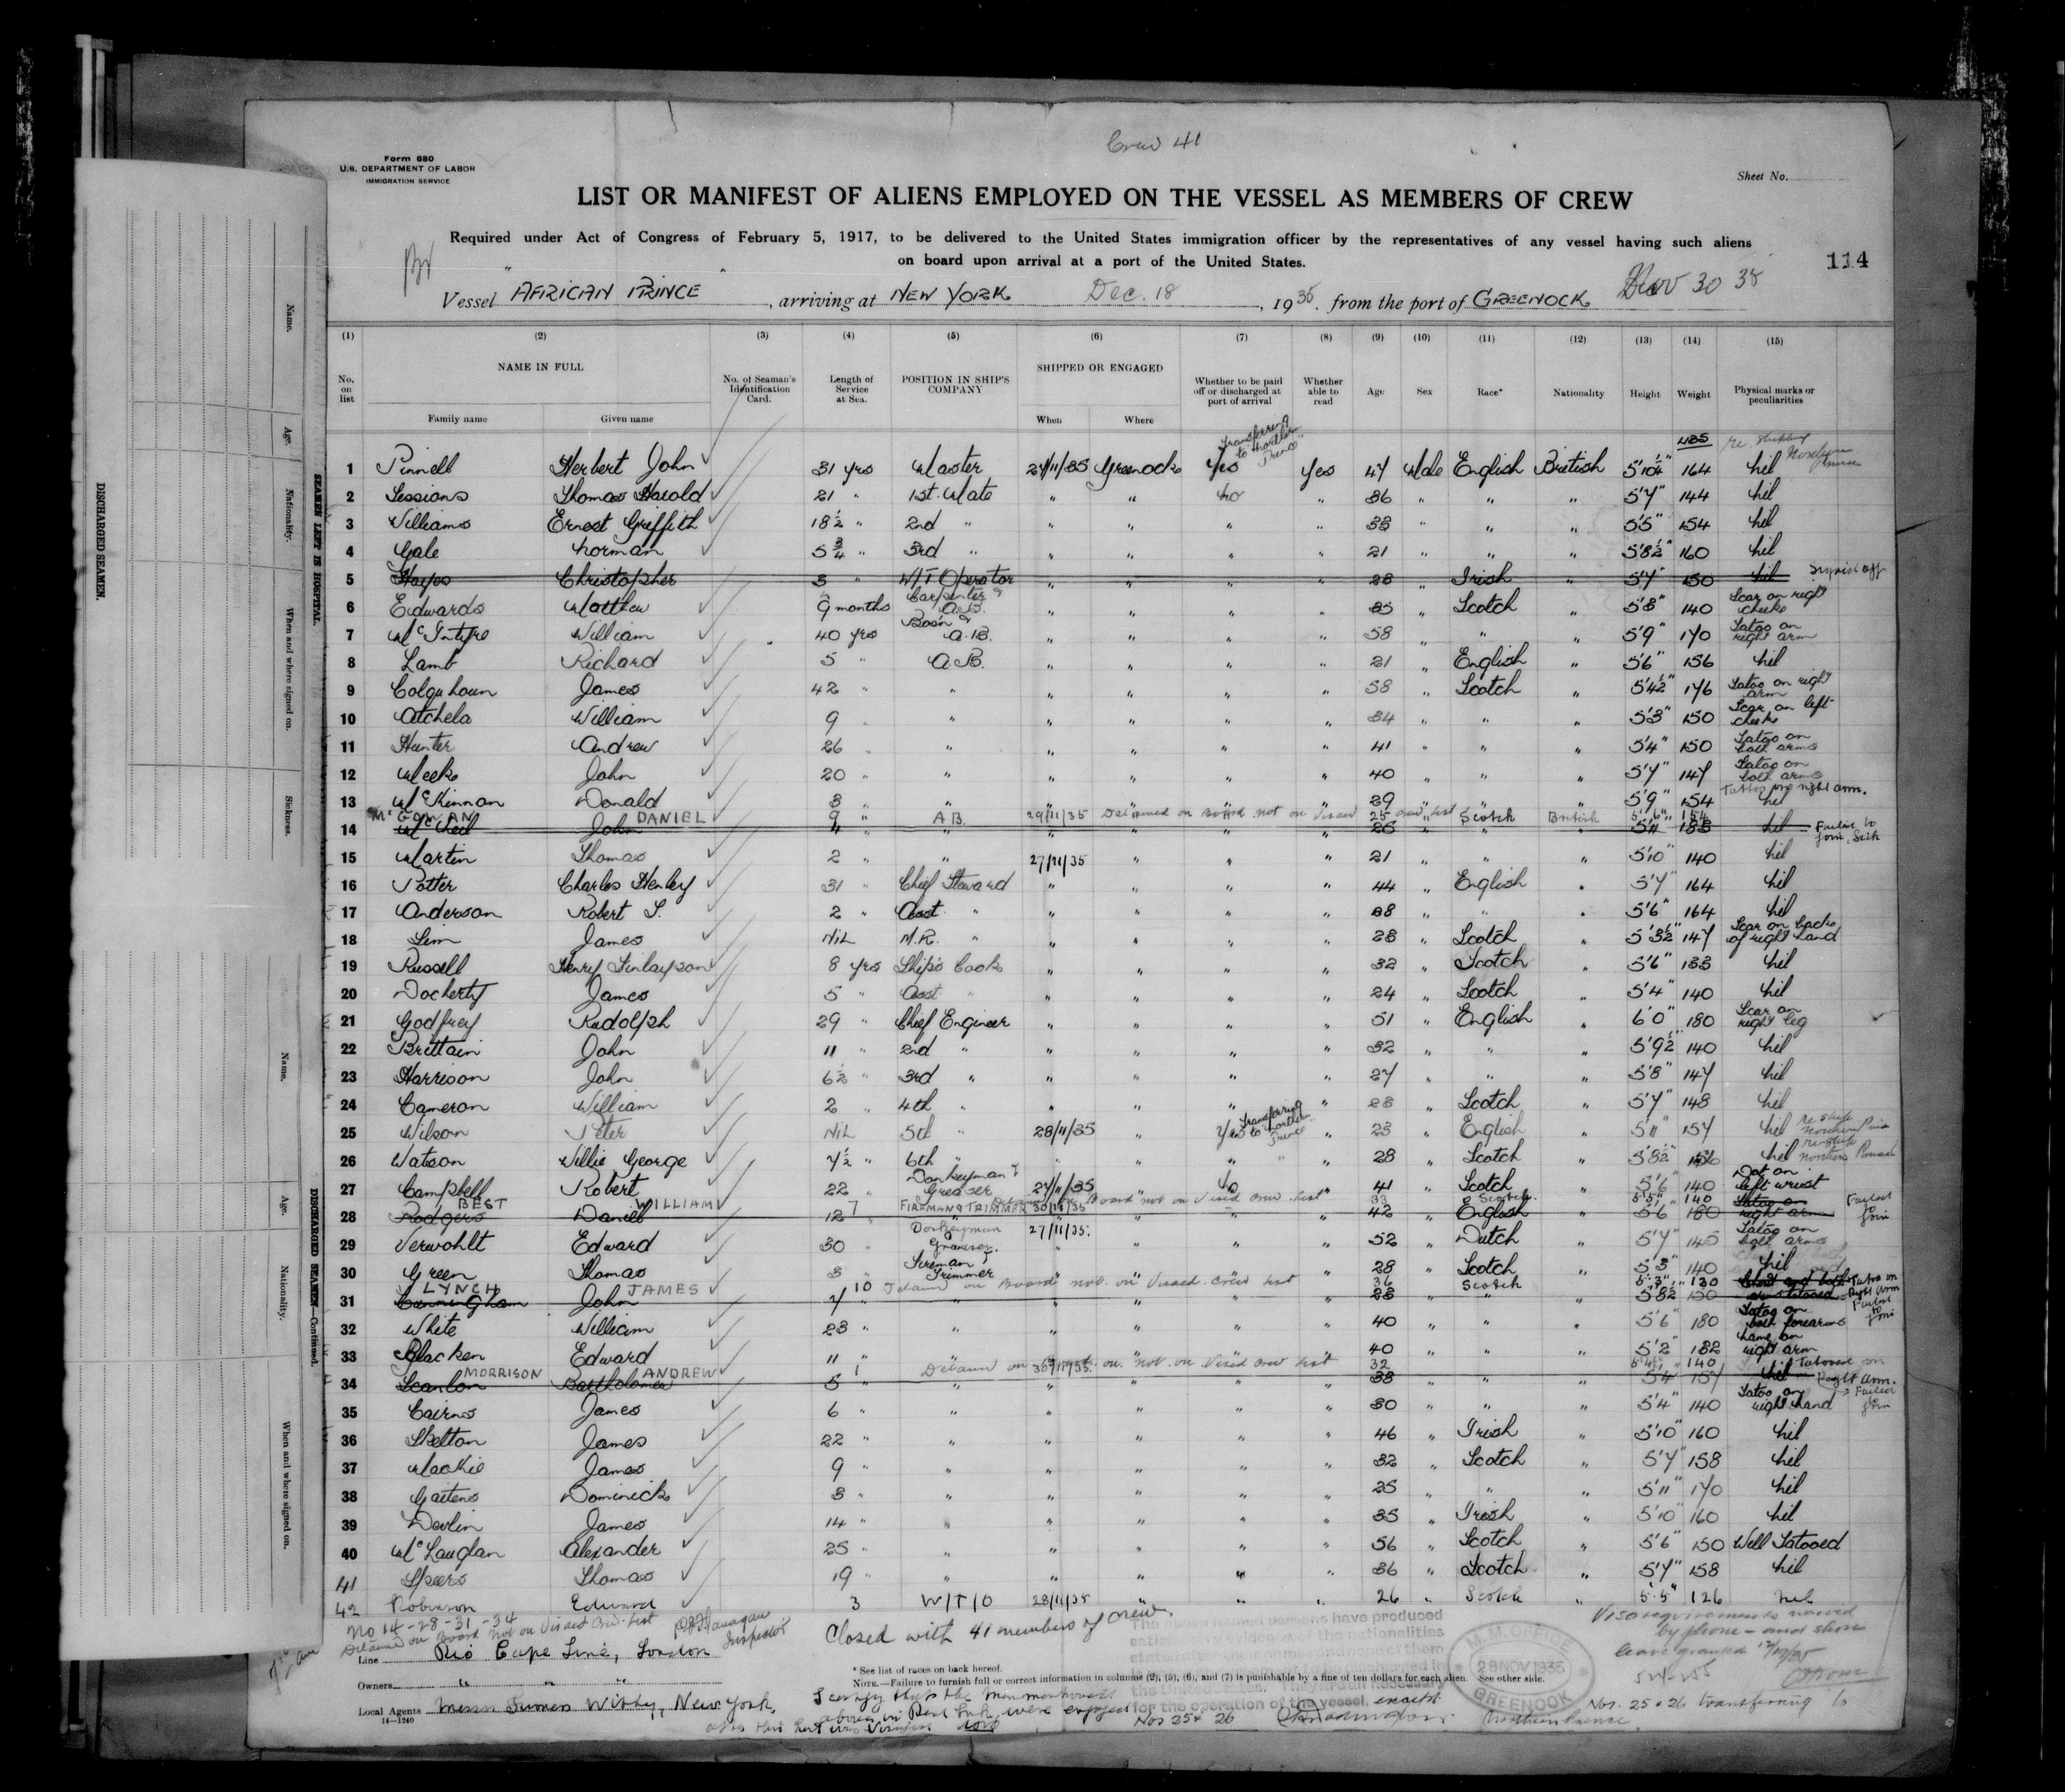 Crew 41
Form 680
U.S. DEPARTMENT OF LABOR
IMMIGRATION SERVICE
Sheet No.
LIST OR MANIFEST OF ALIENS EMPLOYED ON THE VESSEL AS MEMBERS OF CREW
Required under Act of Congress of February 5, 1917, to be delivered to the United States immigration officer by the representatives of any vessel having such aliens
on board upon arrival at a port of the United States.
114
Vessel "AFRICAN PRINCE", arriving at NEW YORK Dec. 18, 1935. from the port of GREENOCK Nov 30 35
(1) (2) (3) (4) (5) (6) (7) (8) (9) (10) (11) (12) (13) (14) (15)
No. on list NAME IN FULL No. of Seaman's Identification Card. Length of Service at Sea. POSITION IN SHIP'S COMPANY SHIPPED OR ENGAGED Whether to be paid off or discharged at port of arrival Whether able to read Age Sex Race* Nationality Height Weight Physical marks or peculiarities
Family name Given name When Where
Transferring to Northern Prince
1 Pinnell Herbert John 31 yrs Master 27/11/35 Greenock Yes Yes 47 Male English British 5'10¼" 164 Nil
2 Sessions Thomas Harold 21 " 1st. Mate " " No " 36 " " " 5'7" 144 Nil
3 Williams Ernest Griffith 18½ " 2nd " " " " " 33 " " " 5'5" 154 Nil
4 Gale Norman 5¾ " 3rd " " " " " 21 " " " 5'8½" 160 Nil
5 Hayes Christopher 3 " W/T Operator " " " " 28 " Irish " 5'7" 150 Nil
6 Edwards Matthew 9 months Carpenter & A.B. " " " " 25 " Scotch " 5'8" 140 Scar on right cheek
7 McIntyre William 40 yrs Bos'n & A.B. " " " " 58 " " " 5'9" 170 Tatoo on right arm
8 Lamb Richard 5 " A.B. " " " " 21 " English " 5'6" 156 Nil
9 Colquhoun James 42 " " " " " " 58 " Scotch " 5'4½" 176 Tatoo on right arm
10 Atchela William 9 " " " " " " 34 " " " 5'3" 150 Scar on left cheek
11 Hunter Andrew 26 " " " " " " 41 " " " 5'4" 150 Tatoo on both arms
12 Meek John 20 " " " " " " 40 " " " 5'7" 147 Tatoo on both arms
13 McKinnan Donald 3 " " " " " " 29 " " " 5'9" 154 Nil Tattoo on right arm.
McGOWAN DANIEL 9 " A.B. 29/11/35 Detained on Board not on Visaed crew list 25 Scotch British 5'6" 154
14 McNeil John 4 " " " " " " 25 " " " 5'11" 183 Nil Failed to join, Sick
15 Martin Thomas 2 " " 27/11/35 " " " 21 " " " 5'10" 140 Nil
16 Potter Charles Henley 31 " Chief Steward " " " " 44 " English " 5'7" 164 Nil
17 Anderson Robert S. 2 " Asst. " " " " " 28 " " " 5'6" 164 Nil
18 Sim James NIL M.R. " " " " " 23 " Scotch " 5'3½" 147 Scar on back of right hand
19 Russell Henry Finlayson 8 yrs Ship's Cook " " " " 32 " Scotch " 5'6" 133 Nil
20 Docherty James 5 " Asst " " " " " 24 " Scotch " 5'4" 140 Nil
21 Godfrey Rudolph 29 " Chief Engineer " " " " 51 " English " 6'0" 180 Scar on right leg
22 Brittain John 11 " 2nd " " " " " 32 " " " 5'9½" 140 Nil
23 Harrison John 6½ " 3rd " " " " " 27 " " " 5'8" 147 Nil
24 Cameron William 2 " 4th " " " " " 23 " Scotch " 5'7" 148 Nil
25 Wilson Peter NIL 5th " 28/11/35 " Yes Transferring to Northern Prince " 23 " English " 5'11" 157 Nil
26 Watson Willie George 7½ " 6th " " " " " 28 " Scotch " 5'8½" Nil
27 Campbell Robert 22 " Donkeyman & Greaser 27/11/35 " No " 41 " Scotch " 5'6" 140 Dot on left wrist
BEST WILLIAM 7 FIREMAN & TRIMMER 30/11/35 Detained on Board not on Visaed crew list 33 Scotch 5'5" 140
28 Rodgers Daniel 12 " " " " " 42 " English " 5'6" 180 Tatoo on right arm Failed to join
29 Verwohlt Edward 30 " Donkeyman Greaser. 27/11/35. " " " 52 " Dutch " 5'7" 145 Tatoo on both arms
30 Green Thomas 3 " Fireman & Trimmer " " " " 28 " Scotch " 5'3" 140 Nil
LYNCH JAMES 10 Detained on Board not on Visaed crew list 36 Scotch 5'3" 130 Tattoo on Right arm
31 Cunningham John 7 " " " " " " 23 " " " 5'8½" 150 Failed to join
32 White William 23 " " " " " " 40 " " " 5'6" 180 Tatoo on both forearms
33 Blacken Edward 11 " " " " " " 40 " " " 5'2" 182 Name on right arm
MORRISON ANDREW 1 Detained on Board not on Visaed crew list 32 140 Tatooed on Right Arm.
34 Scanlon Bartholomew 5 " " " " " " 38 " " " 5'4" 157 Nil Failed to join
35 Cairns James 6 " " " " " " 30 " " " 5'4" 140 Tatoo on right hand
36 Skelton James 22 " " " " " " 46 " Irish " 5'10" 160 Nil
37 Mackie James 9 " " " " " " 32 " Scotch " 5'7" 158 Nil
38 Gaitens Dominick 3 " " " " " " 25 " " " 5'11" 170 Nil
39 Devlin James 14 " " " " " " 35 " Irish " 5'10" 160 Nil
40 McLauglan Alexander 25 " " " " " " 56 " Scotch " 5'6" 150 Well Tatooed
41 Speers Thomas 19 " " " " " " 36 " Scotch " 5'7" 158 Nil
42 Robinson Edward 3 W/T/O 28/11/35 " " " 26 " Scotch " 5'5" 126 Nil
No 14-28-31-34
Detained on Board not on Visaed Crew List Inspector
Closed with 41 members of crew.
Visa requirements waived by phone - and shore leave granted
Line Rio Cape Line, London
M.M. OFFICE
28 NOV 1935
GREENOCK
* See list of races on back hereof.
NOTE.—Failure to furnish full or correct information in columns (2), (5), (6), and (7) is punishable by a fine of ten dollars for each alien. See other side.
Owners " " "
Local Agents Messrs Furness Withy, New York,
14—1240
for the operation of the vessel, except Nos 25 & 26
Nos. 25 & 26 transferring to Northern Prince.
DISCHARGED SEAMEN.
SEAMEN LEFT IN HOSPITAL.
Name.
Age.
Nationality.
When and where signed on.
Sickness.
DISCHARGED SEAMEN—Continued.
Name.
Age.
Nationality.
When and where signed on.